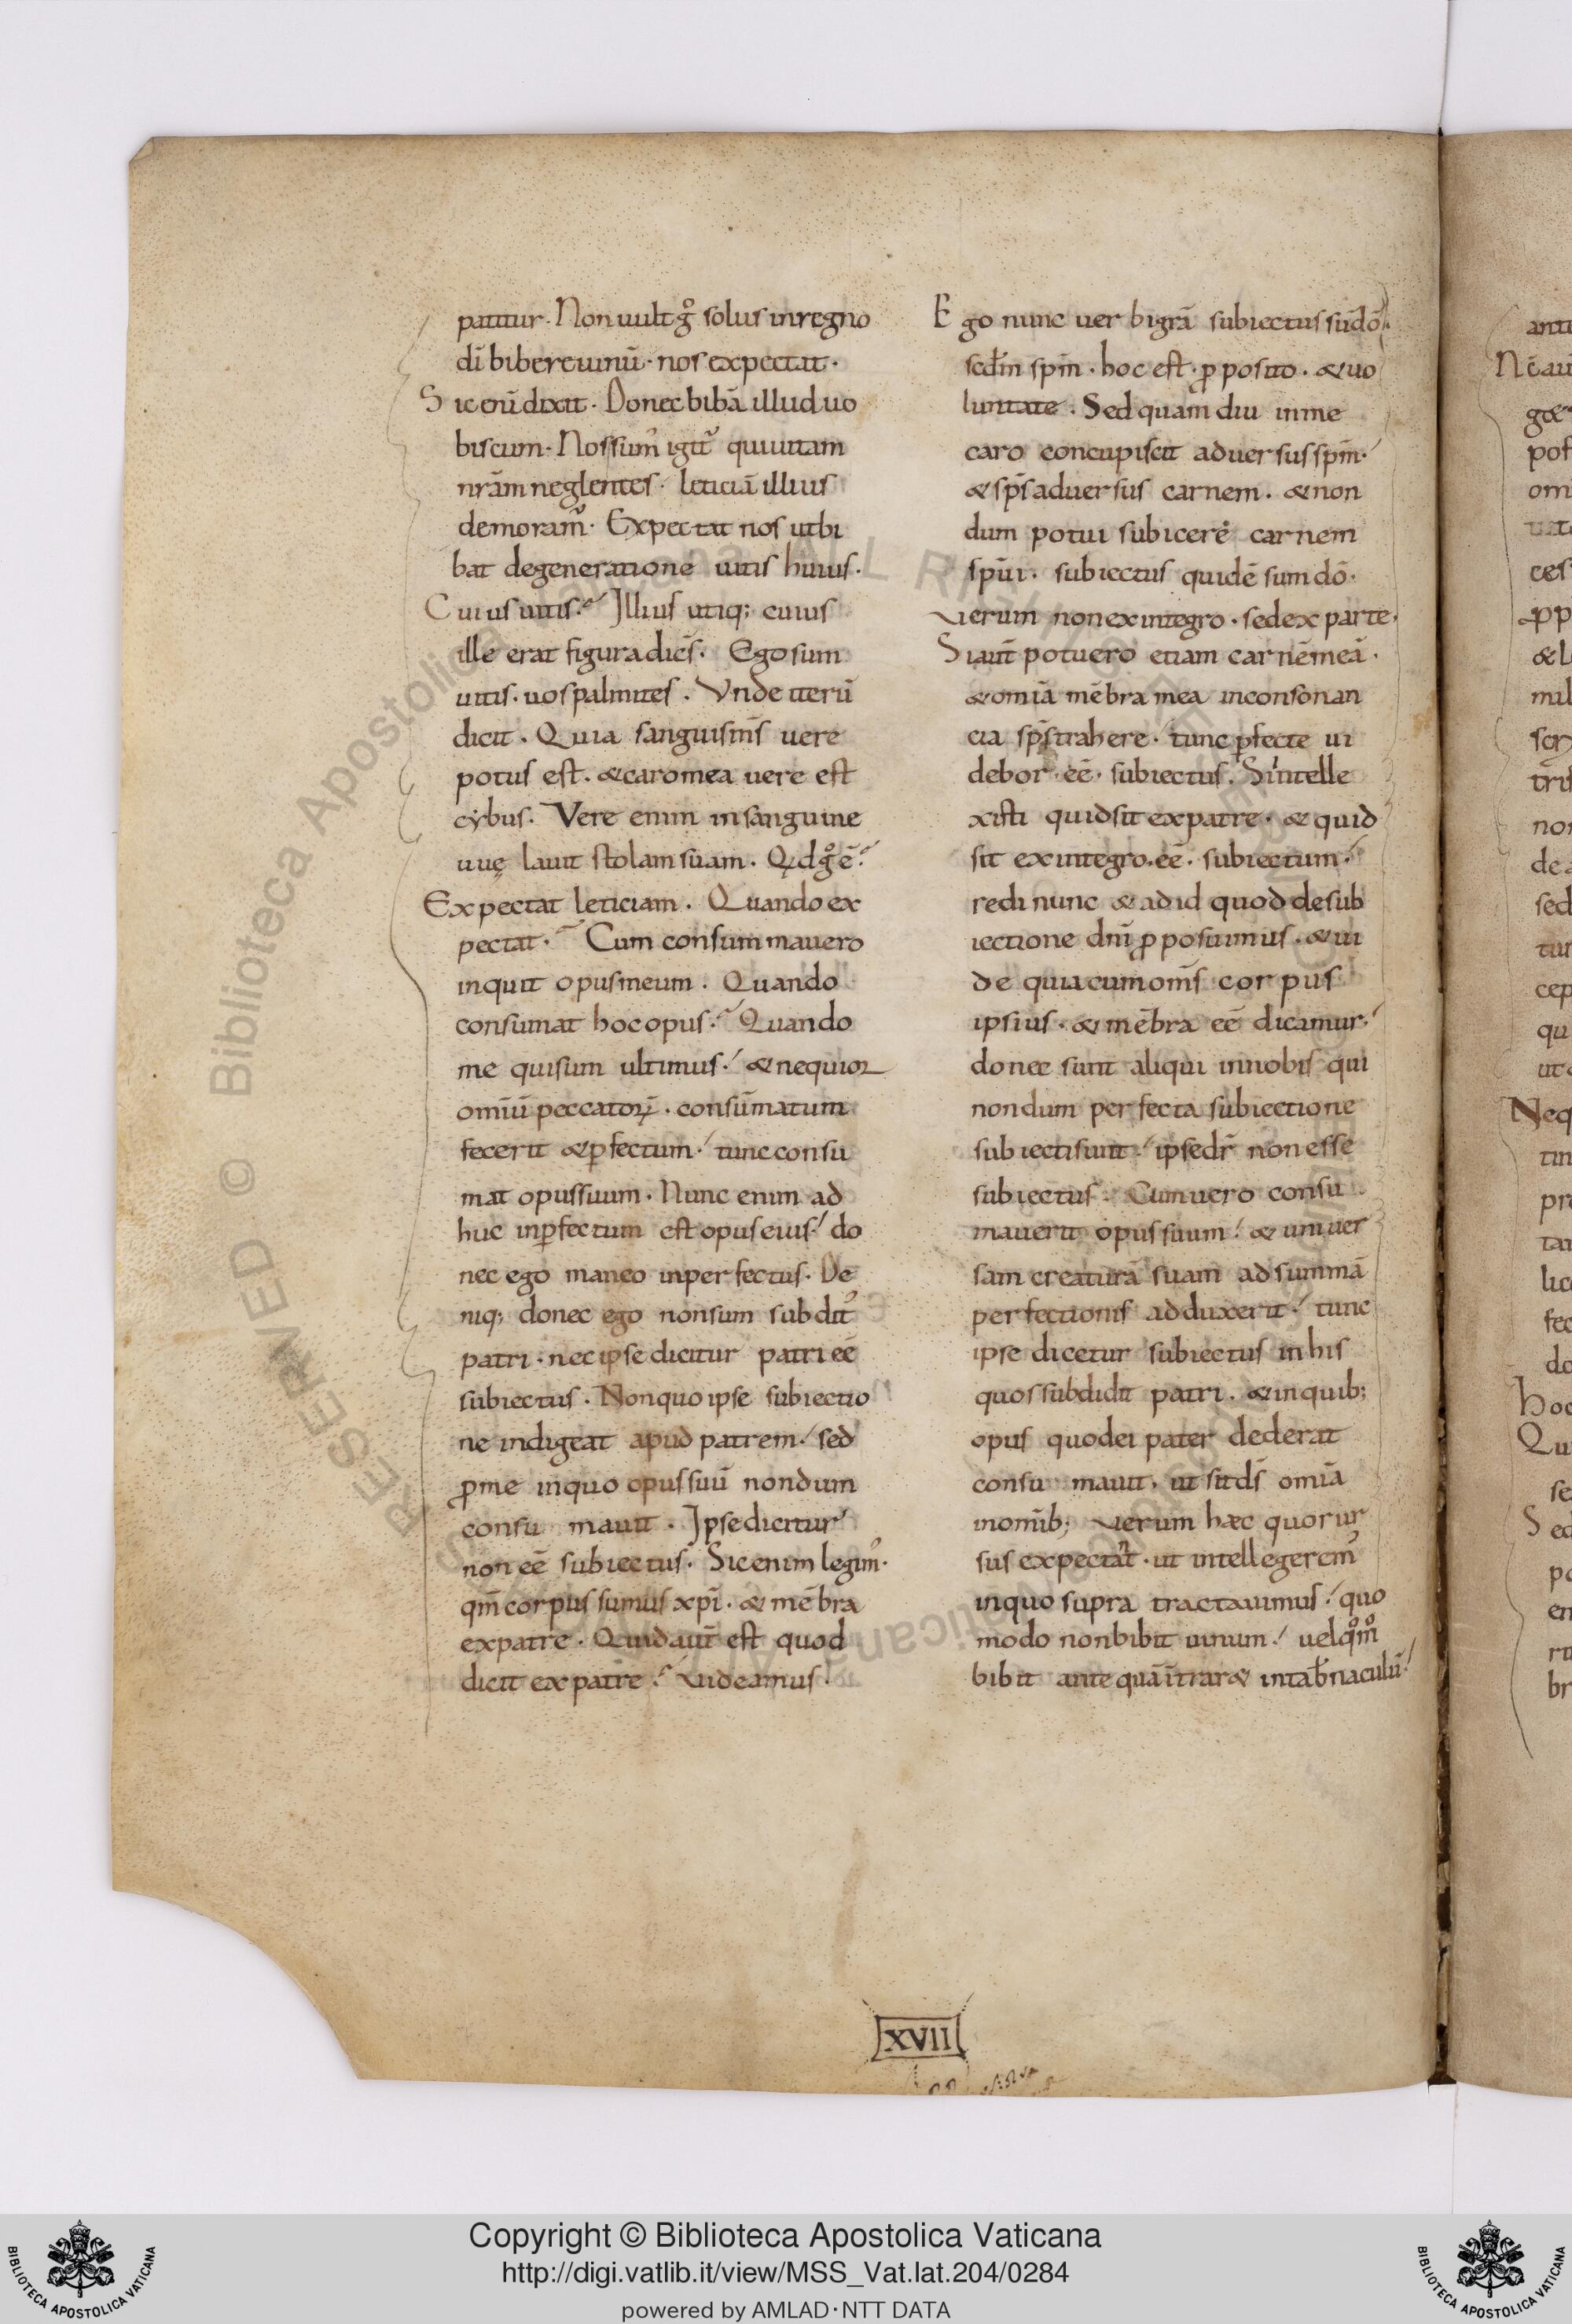 patitur. Non uult gͦ solus inregno
dī bibereuinū. nos expectat.
Sic enī dixit. Donec bibā illud uo
biscum. Nos sum᾽ igit᷑ qui uitam
nr̄am neglentes. leticiā illius
demoram᷑. Expectat nos utbi
bat degeneratione uitis huius.
Cuius uitis? Illius utiq; cuius
ille erat figura dicēs. Ego sum
uitis. uos palmites. Vnde iterū
dicit. Quia sanguis ms̄ uere
potus est. & caro mea uere est
cybus. Vere enim in sanguine
uuę lauit stolam suam. Qꝺ gͦ ē?
Expectat leticiam. Quando ex
pectat? Cum consummauero
inquit opus meum. Quando
consumat hoc opus? Quando
me qui sum ultimus. & nequior
omīū peccatorꝝ. consūmatum
fecerit & ꝑfectum. tunc consu
mat opus suum. Nunc enim ad
huc inꝑfectum est opus eius. do
nec ego maneo inperfectus. De
niq; donec ego non sum subdit᾽
patri. nec ipse dicitur patri eē
subiectus. Non quo ipse subiectio
ne indigeat apud patrem. sed
ꝓ me in quo opus suū nondum
consu mauit. Ipse dicitur
non eē subiectus. Sic enim legim᾽.
qm̄ corpus sumus xpī. & mēbra
ex patre. Quid aut̄ est quod
dicit ex patre? Videamus.
Ego nunc uerbi grā subiectus sū dō.
sc̄dm spm̄. hoc est. ꝓposito. & uo
luntate. Sed quam diu in me
caro concupiscit aduersus spm̄.
& sps̄ aduersus carnem. & non
dum potui subicere carnem
spūi. subiectus quidē sum dō.
uerum non ex integro. sed ex parte.
Si aut̄ potuero etiam carnē meā.
& omīa mēbra mea in consonan
cia sps̄ trahere. tunc ꝑfecte ui
debor eē subiectus. Si intelle
xisti quid sit ex patre. & quid
sit ex integro. eē. subiectum.
redi nunc & ad id quod de sub
iectione dnī ꝓposuimus. & ui
de quia cum om̄s corpus
ipsius. & mēbra eē dicamur.
donec sunt aliqui in nobis qui
nondum perfecta subiectione
subiecti sunt. ipse dr̄ non esse
subiectus. Cum uero consu
mauerit opus suum. & uniuer
sam creaturā suam ad summā
perfectionis adduxerit. tunc
ipse dicetur subiectus in his
quos subdidit patri. & in quib;
opus quod ei pater dederat
consu mauit. ut sit ds̄ omīa
in omīb; uerum hæc quorur
sus expectat. ut intellegerem᾽
in quo supra tractauimus. quo
modo non bibit uinum. uel qͦmͦ
bibit ante quā ītrar& in tab̄naculū.
XVII
antu
Copyright © Biblioteca Apostolica Vaticana
http://digi.vatlib.it/view/MSS_Vat.lat.204/0284
powered by AMLAD·NTT DATA
BIBLIOTECA APOSTOLICA VATICANA
BIBLIOTECA APOSTOLICA VATICANA